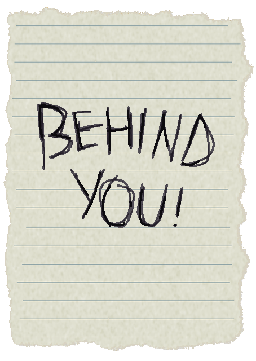 BEHIND
YOU!